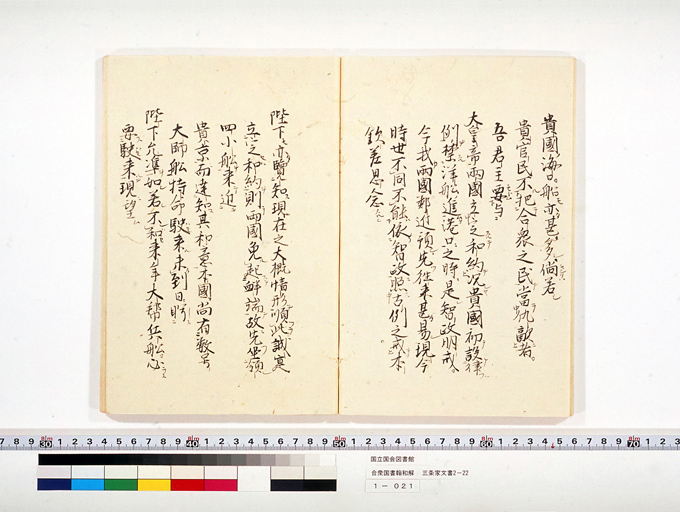 貴國海口船亦甚多尚若
貴官民不把合衆之民當仇敵者
吾君主要与
大皇帝兩國立定之和約况貴國初設律
例禁洋船進港口之時是智政明戒
今我兩國鄰近頭先往来甚易現今
時世不同不能依智政照古例之戒本
欽差思念
陛下亦覽知現在之大概情形順此誠寔
立定之和約則兩國免起衅端故先坐領
四小船来近
貴京而達知其和意本國尚有数号
大師船持命駛来未到日盼
陛下允準如若不和来年大幇兵船必
要駛来現望
国立国会図書館
合衆国書翰和解 三条家文書2-22
1-021